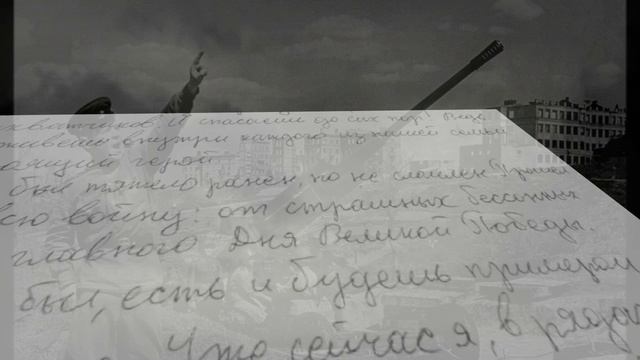 захватчиков. И спасаешь до сих пор! Ведь
живешь внутри каждого из нашей семьи
оящий герой
был тяжело ранен, но не сломлен. Прошел
всю войну: от страшных бессонных
главного Дня Великой Победы.
был, есть и будешь примером
Что сейчас я, в ряда